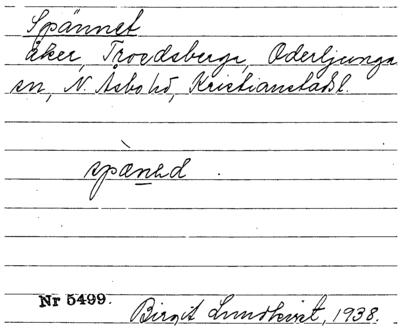 Spännet
åker, Troedsberga, Oderljunga
sn, N. Åsbo hd, Kristianstads l.
spæ̀ned
Nr 5499.
Birgit Lundkvist, 1938.